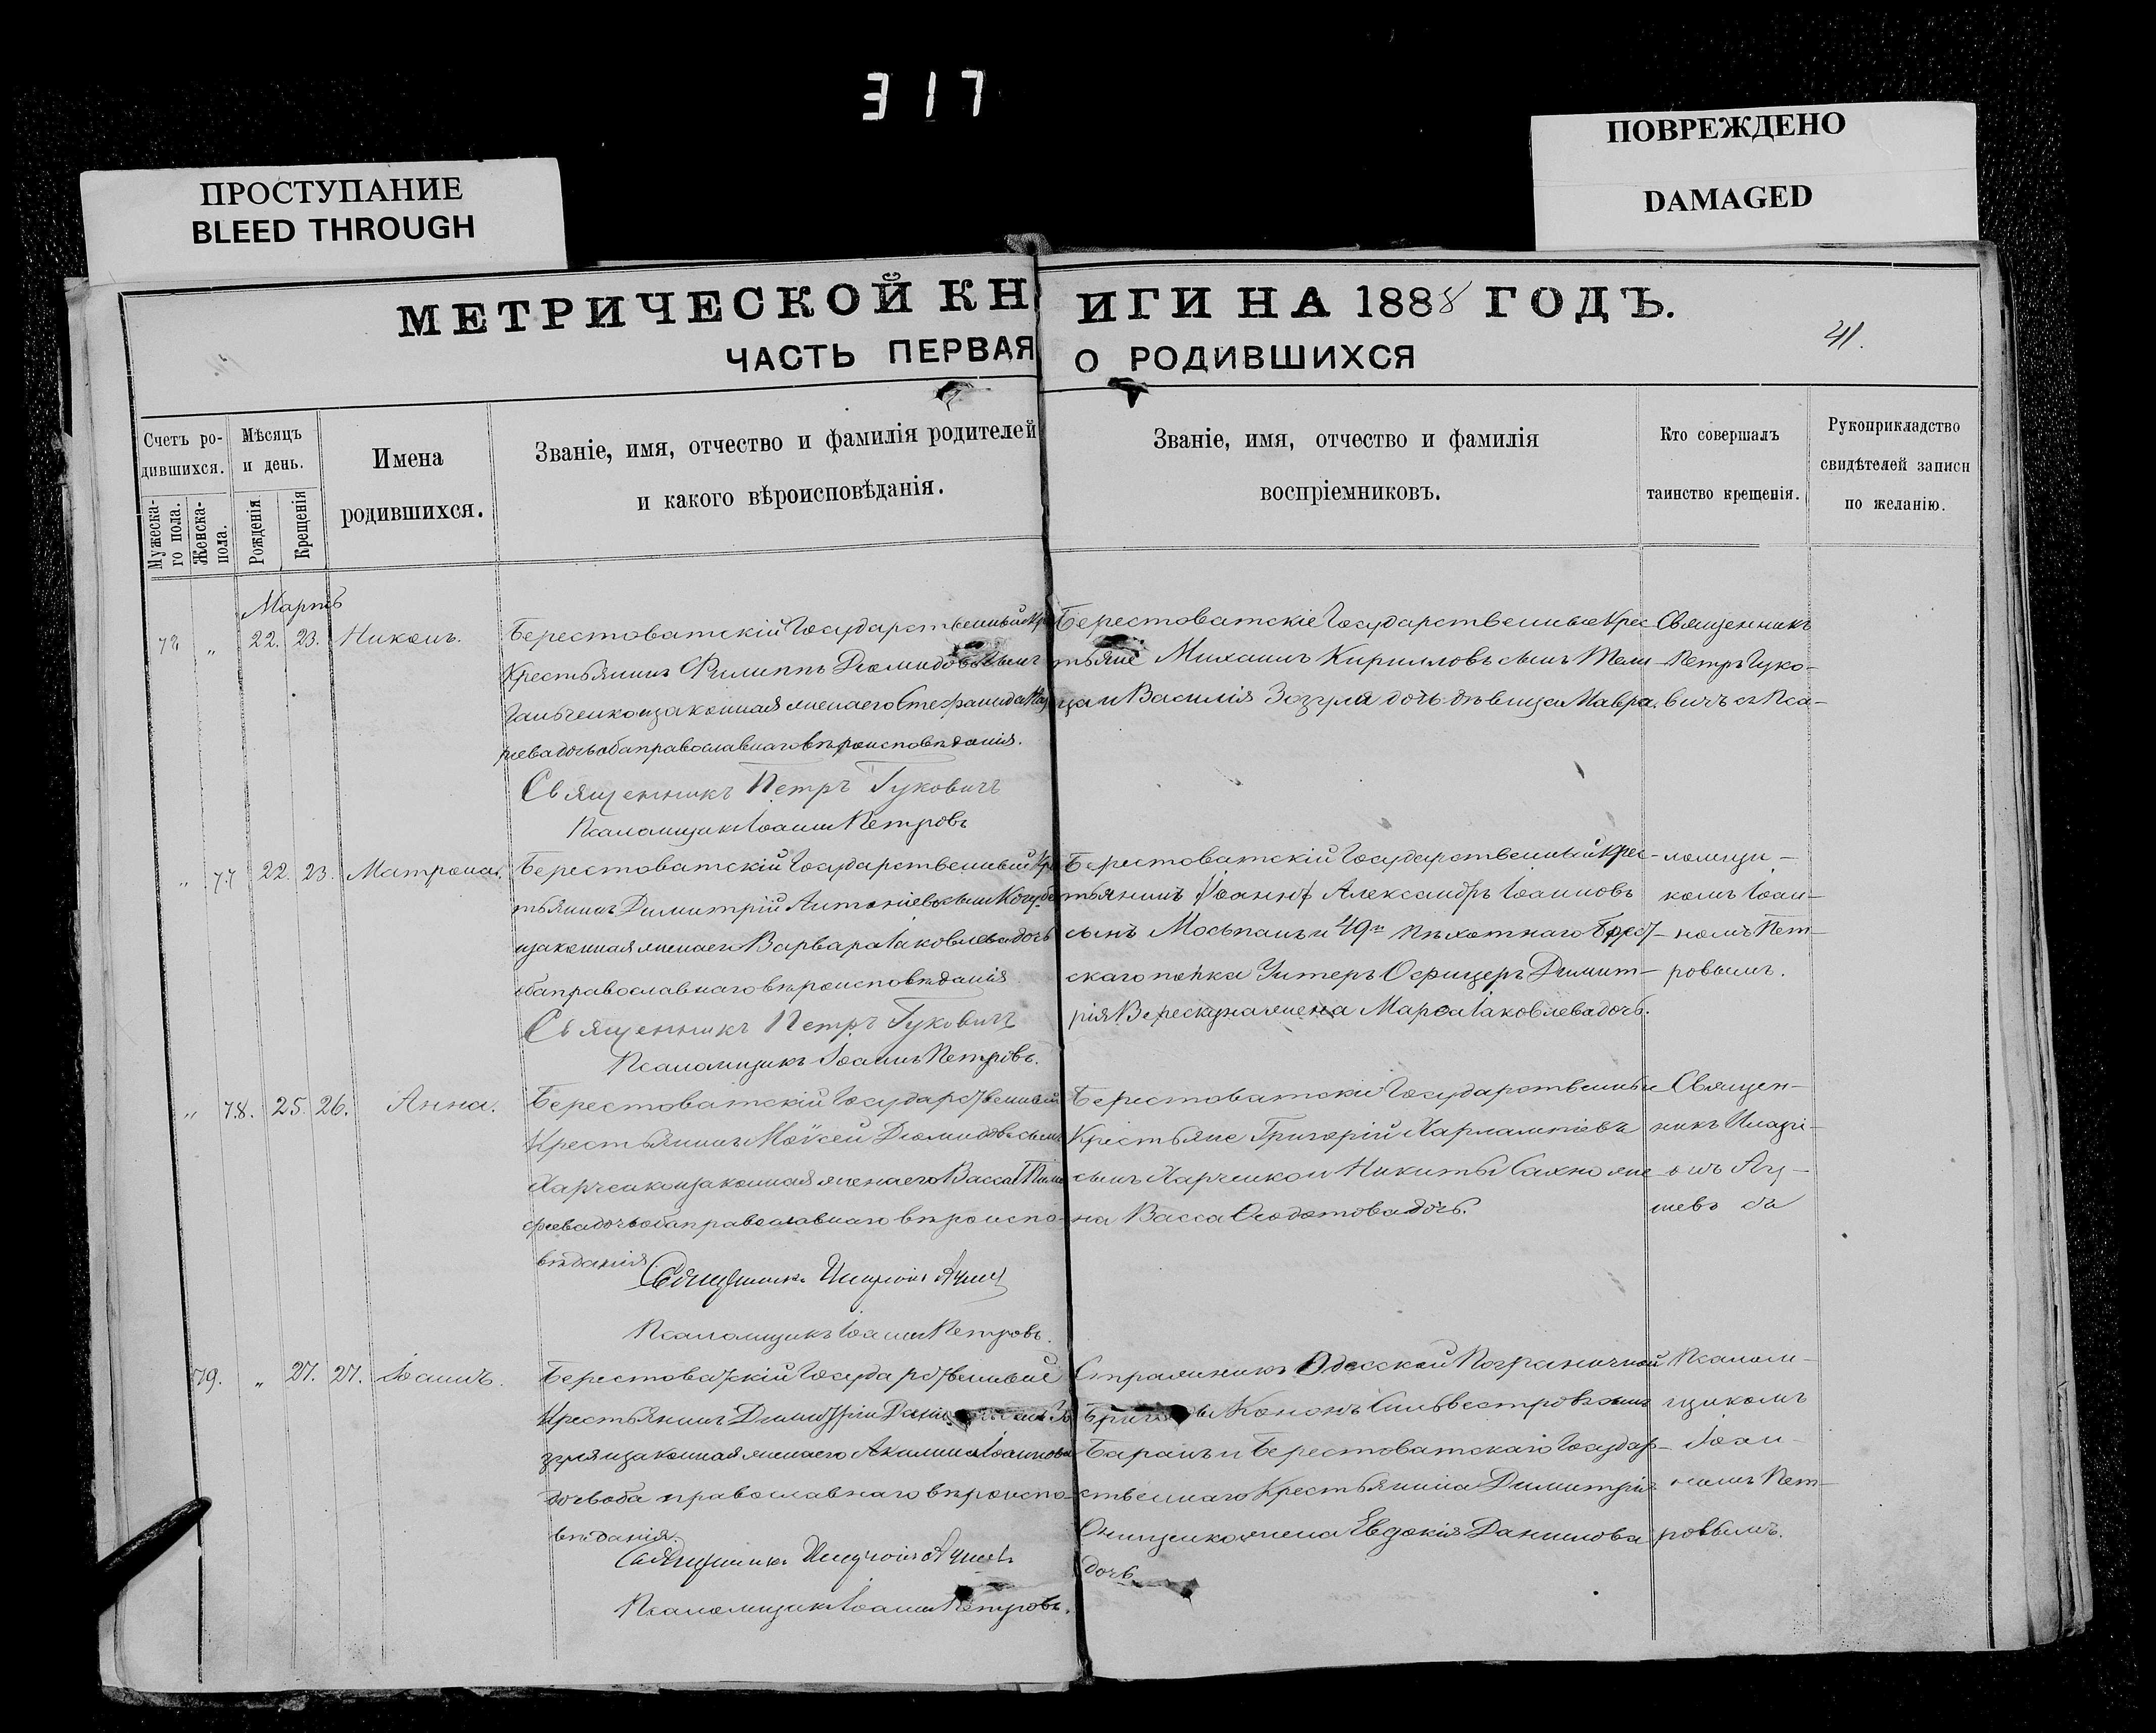 317
ПРОСТУПАНИЕ
BLEED THROUGH
ПОВРЕЖДЕНО
DAMAGED
МЕТРИЧЕСКОЙ КНИГИ НА 1888 ГОДЪ.
41.
ЧАСТЬ ПЕРВАЯ О РОДИВШИХСЯ
Счетъ ро-
дившихся.
Мужеска-
го пола.
Женска-
пола.
Мѣсяцъ
и день.
Рожденія
Крещенія
Имена
родившихся.
Званіе, имя, отчество и фамилія родителей
и какого вѣроисповѣданія.
Званіе, имя, отчество и фамилія
воспріемниковъ.
Кто совершалъ
таинство крещенія.
Рукоприкладство
свидѣтелей записи
по желанію.
Мартъ
„ 22. 23. Никонъ.
Берестоватскій Государственный
Крестьянинъ Филиппъ Дiомидовъ сынъ
и законная жена его Стефанида
дочь оба православнаго вѣроисповѣданія.
Священникъ Петръ Гуковичъ
Псаломщикъ Іоаннъ Петровъ
Берестоватскіе Государственные Крес-
тьяне Михаилъ Кирилловъ сынъ
и Василія Зозули дочь дѣвица Мавра.
Священникъ
Петръ Гуко-
вичъ съ Пса-
„ 77 22. 23. Матрона.
Берестоватскій Государственный Кре
тьянинъ Димитрій Антоніевъ сынъ
и законная жена его Варвара Іаковлева дочь
оба православнаго вѣроисповѣданія
Священникъ Петръ Гуковичъ
Псаломщикъ Іоаннъ Петровъ.
Берестоватскій Государственный Крес-
тьянинъ Александръ Іоанновъ
сынъ Моспанъ и 49го Пѣхотнаго Брест-
скаго полка Унтеръ Офицеръ Димит-
рія жена Марѳа Іаковлева дочь.
ломщи-
комъ Іоан-
номъ Пет-
ровымъ.
„ 78. 25. 26. Анна.
Берестоватскій Государственный
Крестьянинъ Моѵсей Дiомидовъ сынъ
Харченко и законная жена его Васса Тимо
феева дочь оба православнаго вѣроиспо-
вѣданія
Священникъ
Псаломщикъ Іоаннъ Петровъ.
Берестоватскіе Государственные
Крестьяне Григорій Харлампіевъ
сынъ Харченко и Никиты Сахно же
на Васса Ѳеодотова дочь.
Священ-
никъ
съ
79. „ 27. 27. Іоаннъ.
Берестоватскій Государственный
Крестьянинъ Димитрій
и законная жена его Акилина Іоаннова
дочь оба православнаго вѣроиспо-
вѣданія.
Священникъ
Псаломщикъ Іоаннъ Петровъ.
Стражникъ Одесской Пограничной
Кононъ Сильвестровъ сынъ
Баранъ и Берестоватскаго Государ-
ственнаго Крестьянина Димитрія
Онищенко жена Евдокія Данилова
дочь
Псалом-
щикомъ
Іоан-
номъ Пет-
ровымъ.